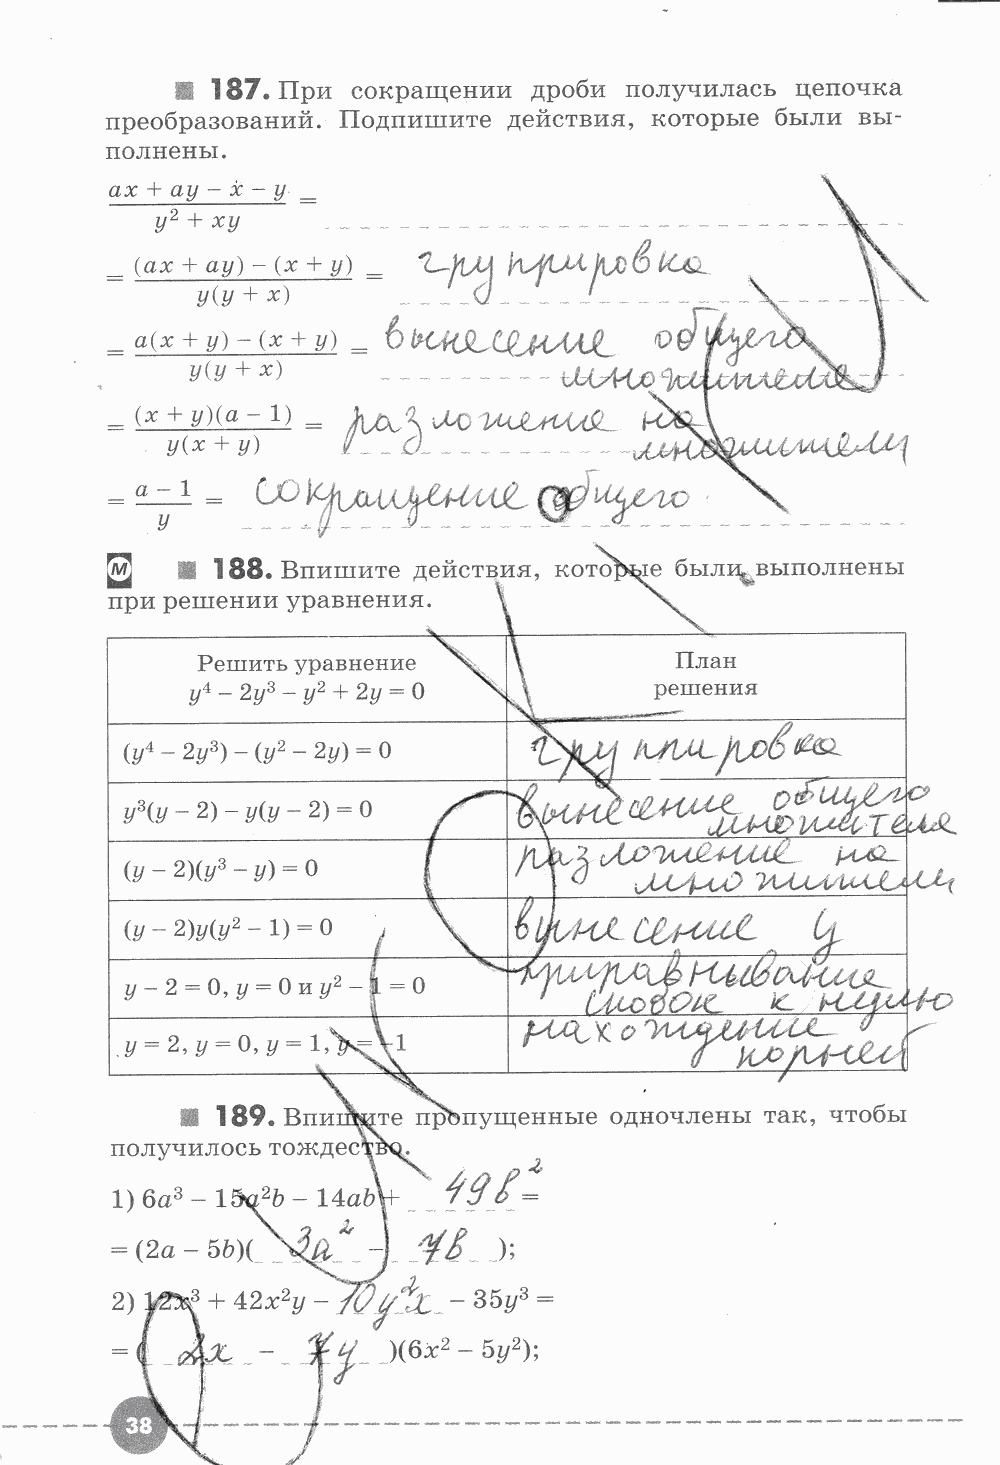 187. При сокращении дроби получилась цепочка
преобразований. Подпишите действия, которые были вы-
полнены.
ax + ay − x − y / y² + xy =
= (ax + ay) − (x + y) / y(y + x) = группировка
= a(x + y) − (x + y) / y(y + x) = вынесение общего
множителя
= (x + y)(a − 1) / y(x + y) = разложение на
множители
= a − 1 / y = сокращение общего
М 188. Впишите действия, которые были выполнены
при решении уравнения.
Решить уравнение План
y⁴ − 2y³ − y² + 2y = 0 решения
(y⁴ − 2y³) − (y² − 2y) = 0 группировка
y³(y − 2) − y(y − 2) = 0 вынесение общего
множителя
(y − 2)(y³ − y) = 0 разложение на
множители
(y − 2)y(y² − 1) = 0 вынесение y
y − 2 = 0, y = 0 и y² − 1 = 0 приравнывание
скобок к нулю
y = 2, y = 0, y = 1, y = −1 нахождение
корней
189. Впишите пропущенные одночлены так, чтобы
получилось тождество.
1) 6a³ − 15a²b − 14ab + 49b² =
= (2a − 5b)( 3a² − 7b );
2) 12x³ + 42x²y − 10y²x − 35y³ =
= ( 2x − 7y )(6x² − 5y²);
38